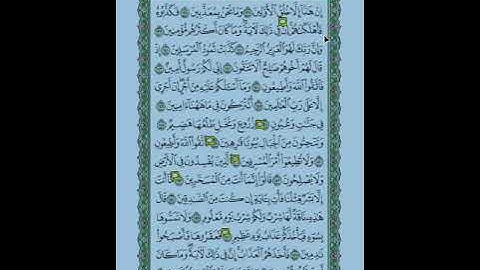 إِنْ هَٰذَا إِلَّا خُلُقُ الْأَوَّلِينَ وَمَا نَحْنُ بِمُعَذَّبِينَ فَكَذَّبُوهُ
فَأَهْلَكْنَاهُمْ إِنَّ فِي ذَٰلِكَ لَآيَةً وَمَا كَانَ أَكْثَرُهُم مُّؤْمِنِينَ
وَإِنَّ رَبَّكَ لَهُوَ الْعَزِيزُ الرَّحِيمُ كَذَّبَتْ ثَمُودُ الْمُرْسَلِينَ إِذْ
قَالَ لَهُمْ أَخُوهُمْ صَالِحٌ أَلَا تَتَّقُونَ إِنِّي لَكُمْ رَسُولٌ أَمِينٌ
فَاتَّقُوا اللَّهَ وَأَطِيعُونِ وَمَا أَسْأَلُكُمْ عَلَيْهِ مِنْ أَجْرٍ إِنْ أَجْرِيَ
إِلَّا عَلَىٰ رَبِّ الْعَالَمِينَ أَتُتْرَكُونَ فِي مَا هَاهُنَا آمِنِينَ
فِي جَنَّاتٍ وَعُيُونٍ وَزُرُوعٍ وَنَخْلٍ طَلْعُهَا هَضِيمٌ
وَتَنْحِتُونَ مِنَ الْجِبَالِ بُيُوتًا فَارِهِينَ فَاتَّقُوا اللَّهَ وَأَطِيعُونِ
وَلَا تُطِيعُوا أَمْرَ الْمُسْرِفِينَ الَّذِينَ يُفْسِدُونَ فِي الْأَرْضِ
وَلَا يُصْلِحُونَ قَالُوا إِنَّمَا أَنتَ مِنَ الْمُسَحَّرِينَ مَا أَنتَ
إِلَّا بَشَرٌ مِّثْلُنَا فَأْتِ بِآيَةٍ إِن كُنتَ مِنَ الصَّادِقِينَ قَالَ
هَٰذِهِ نَاقَةٌ لَّهَا شِرْبٌ وَلَكُمْ شِرْبُ يَوْمٍ مَّعْلُومٍ وَلَا تَمَسُّوهَا
بِسُوءٍ فَيَأْخُذَكُمْ عَذَابُ يَوْمٍ عَظِيمٍ فَعَقَرُوهَا فَأَصْبَحُوا
نَادِمِينَ فَأَخَذَهُمُ الْعَذَابُ إِنَّ فِي ذَٰلِكَ لَآيَةً وَمَا كَانَ